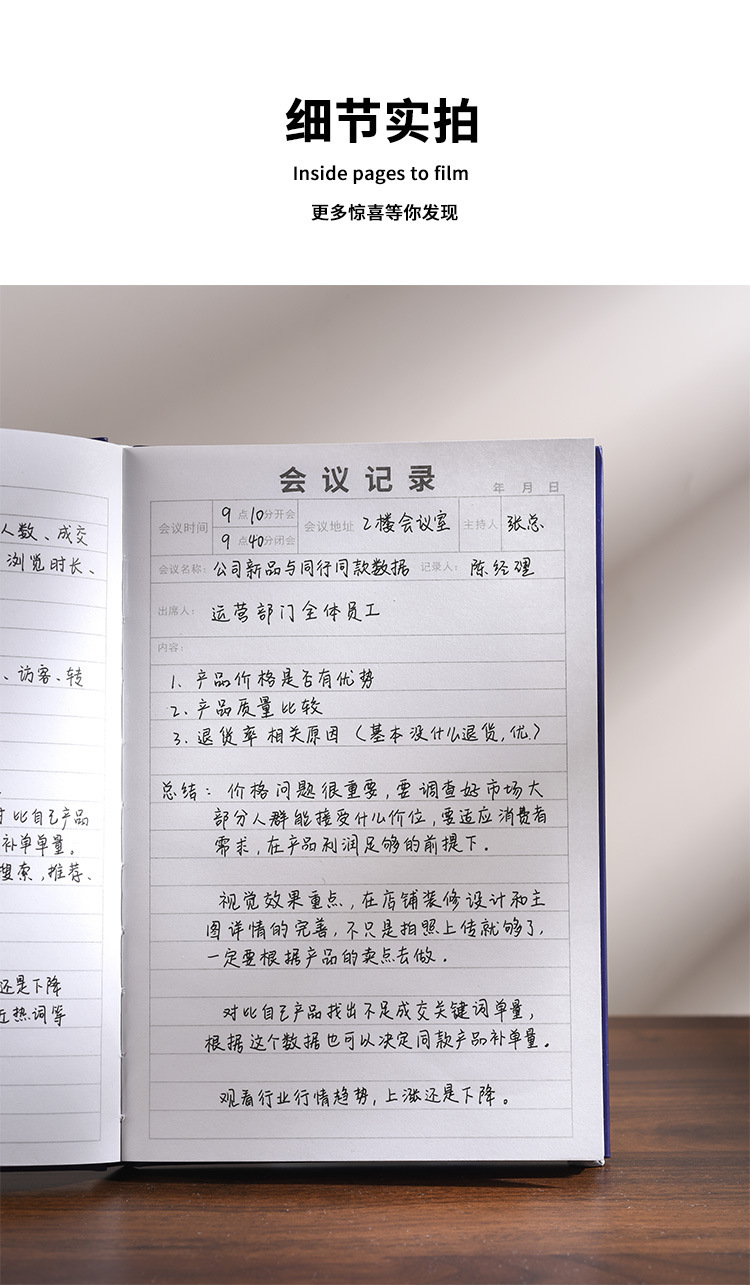 细节实拍
Inside pages to film
更多惊喜等你发现
人数、成交
浏览时长、
、访客、转
对比自己产品
补单单量。
搜索,推荐、
还是下降
近热词等
会议记录
年 月 日
会议时间 9点10分开会 会议地址 2楼会议室 主持人 张总
9点40分闭会
会议名称: 公司新品与同行同款数据 记录人: 陈经理
出席人: 运营部门全体员工
内容:
1、产品价格是否有优势
2、产品质量比较
3、退货率相关原因(基本没什么退货,优)
总结:价格问题很重要,要调查好市场大
部分人群能接受什么价位,要适应消费者
需求,在产品利润足够的前提下.
视觉效果重点,在店铺装修设计和主
图详情的完善,不只是拍照上传就够了,
一定要根据产品的卖点去做.
对比自己产品找出不足成交关键词单量,
根据这个数据也可以决定同款产品补单量。
观看行业行情趋势,上涨还是下降。